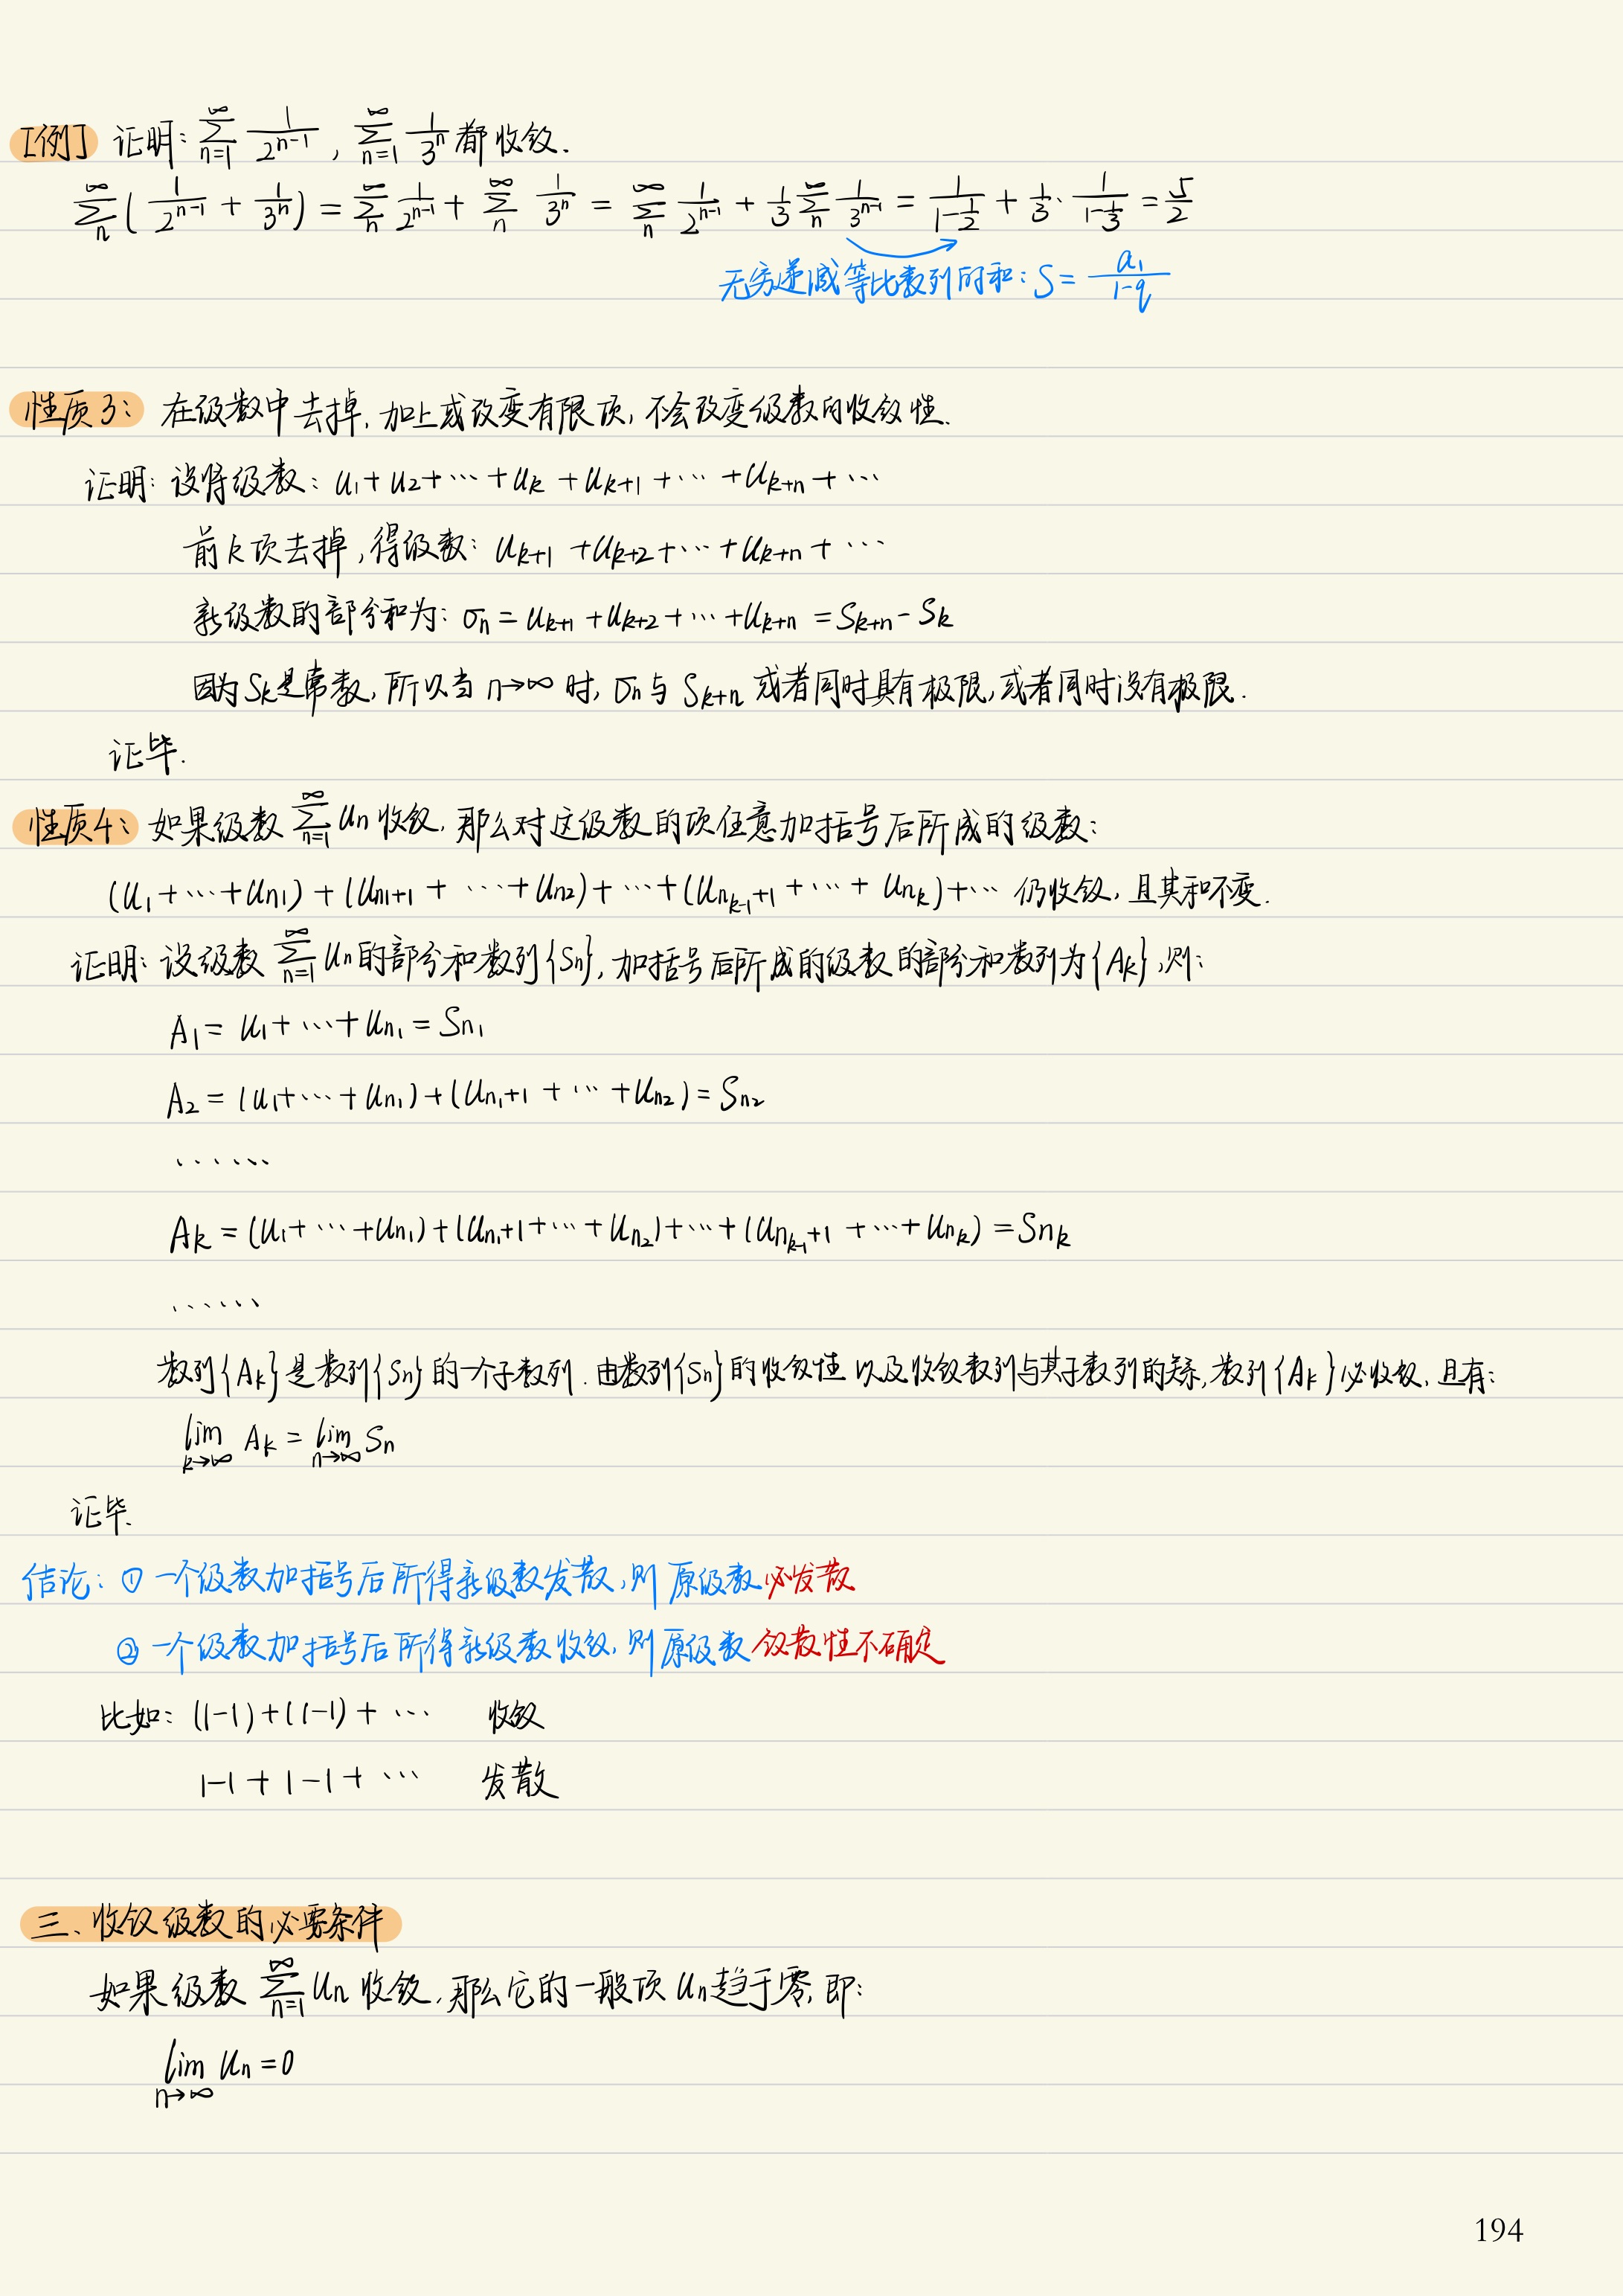 [例] 证明: $\sum_{n=1}^{\infty} \frac{1}{2^{n-1}}$, $\sum_{n=1}^{\infty} \frac{1}{3^n}$ 都收敛.
$\sum_{n}^{\infty} (\frac{1}{2^{n-1}} + \frac{1}{3^n}) = \sum_{n}^{\infty} \frac{1}{2^{n-1}} + \sum_{n}^{\infty} \frac{1}{3^n} = \sum_{n}^{\infty} \frac{1}{2^{n-1}} + \frac{1}{3} \sum_{n}^{\infty} \frac{1}{3^{n-1}} = \frac{1}{1-\frac{1}{2}} + \frac{1}{3} \cdot \frac{1}{1-\frac{1}{3}} = \frac{5}{2}$
无穷递减等比数列的和: $S = \frac{a_1}{1-q}$
性质3: 在级数中去掉, 加上或改变有限项, 不会改变级数的收敛性.
证明: 设将级数: $u_1 + u_2 + \cdots + u_k + u_{k+1} + \cdots + u_{k+n} + \cdots$
前k项去掉, 得级数: $u_{k+1} + u_{k+2} + \cdots + u_{k+n} + \cdots$
新级数的部分和为: $\sigma_n = u_{k+1} + u_{k+2} + \cdots + u_{k+n} = S_{k+n} - S_k$
因为 $S_k$ 是常数, 所以当 $n \to \infty$ 时, $\sigma_n$ 与 $S_{k+n}$ 或者同时具有极限, 或者同时没有极限.
证毕.
性质4: 如果级数 $\sum_{n=1}^{\infty} u_n$ 收敛, 那么对这级数的项任意加括号后所成的级数:
$(u_1 + \cdots + u_{n_1}) + (u_{n_1+1} + \cdots + u_{n_2}) + \cdots + (u_{n_{k-1}+1} + \cdots + u_{n_k}) + \cdots$ 仍收敛, 且其和不变.
证明: 设级数 $\sum_{n=1}^{\infty} u_n$ 的部分和数列 $\{S_n\}$, 加括号后所成的级数的部分和数列为 $\{A_k\}$, 则:
$A_1 = u_1 + \cdots + u_{n_1} = S_{n_1}$
$A_2 = (u_1 + \cdots + u_{n_1}) + (u_{n_1+1} + \cdots + u_{n_2}) = S_{n_2}$
......
$A_k = (u_1 + \cdots + u_{n_1}) + (u_{n_1+1} + \cdots + u_{n_2}) + \cdots + (u_{n_{k-1}+1} + \cdots + u_{n_k}) = S_{n_k}$
......
数列 $\{A_k\}$ 是数列 $\{S_n\}$ 的一个子数列. 由数列 $\{S_n\}$ 的收敛性以及收敛数列与其子数列的关系, 数列 $\{A_k\}$ 必收敛, 且有:
$\lim_{k \to \infty} A_k = \lim_{n \to \infty} S_n$
证毕.
结论: ① 一个级数加括号后所得新级数发散, 则原级数必发散
② 一个级数加括号后所得新级数收敛, 则原级数敛散性不确定
比如: $(1-1) + (1-1) + \cdots$ 收敛
$1-1+1-1+\cdots$ 发散
三、收敛级数的必要条件
如果级数 $\sum_{n=1}^{\infty} u_n$ 收敛, 那么它的一般项 $u_n$ 趋于零, 即:
$\lim_{n \to \infty} u_n = 0$
194